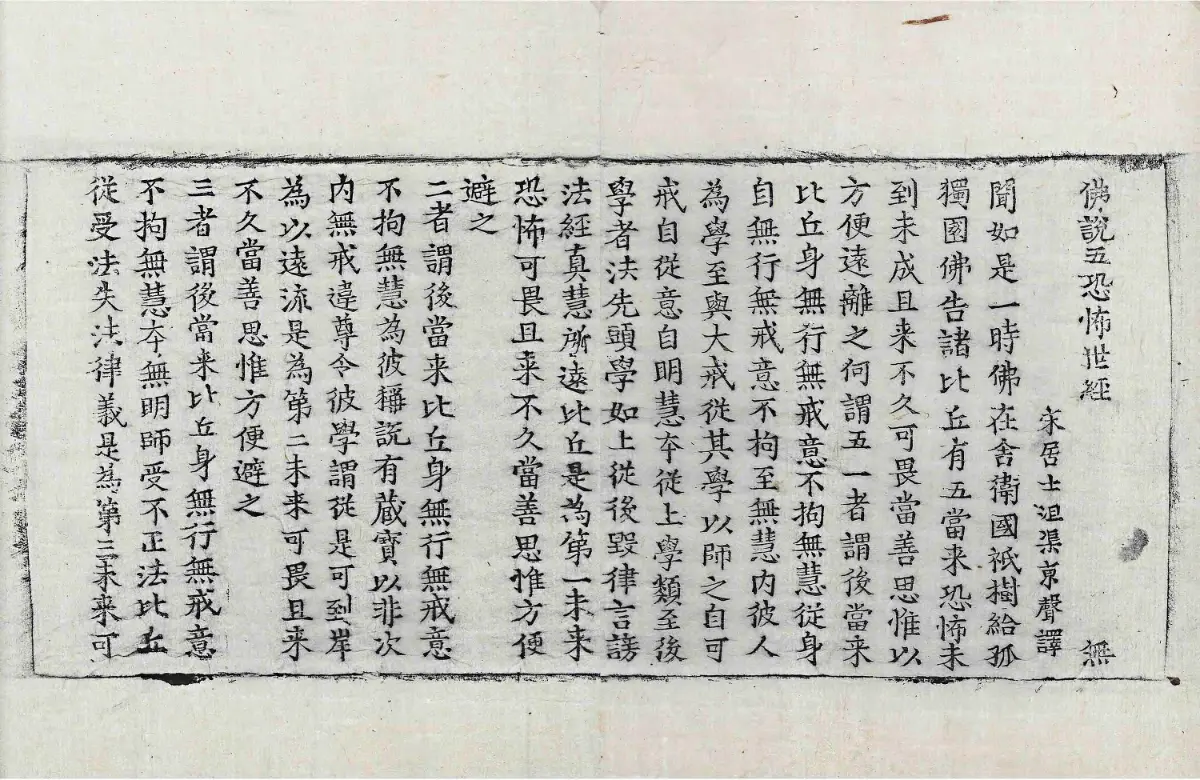 佛說五恐怖世經 無
宋居士沮渠京聲譯
聞如是一時佛在舍衛國祇樹給孤
獨園佛告諸比丘有五當来恐怖未
到未成且来不久可畏當善思惟以
方便遠離之何謂五一者謂後當来
比丘身無行無戒意不拘無慧從身
自無行無戒意不拘至無慧内彼人
為學至與大戒從其學以師之自可
戒自從意自明慧夲從上學類至後
學者法先頭學如上從後毀律言謗
法經真慧所遠比丘是為第一未来
恐怖可畏且来不久當善思惟方便
避之
二者謂後當来比丘身無行無戒意
不拘無慧為彼稱說有藏寳以非次
内無戒違尊令彼學謂從是可到岸
為以遠流是為第二未来可畏且来
不久當善思惟方便避之
三者謂後當来比丘身無行無戒意
不拘無慧夲無明師受不正法比丘
從受法失法律義是為第三未来可